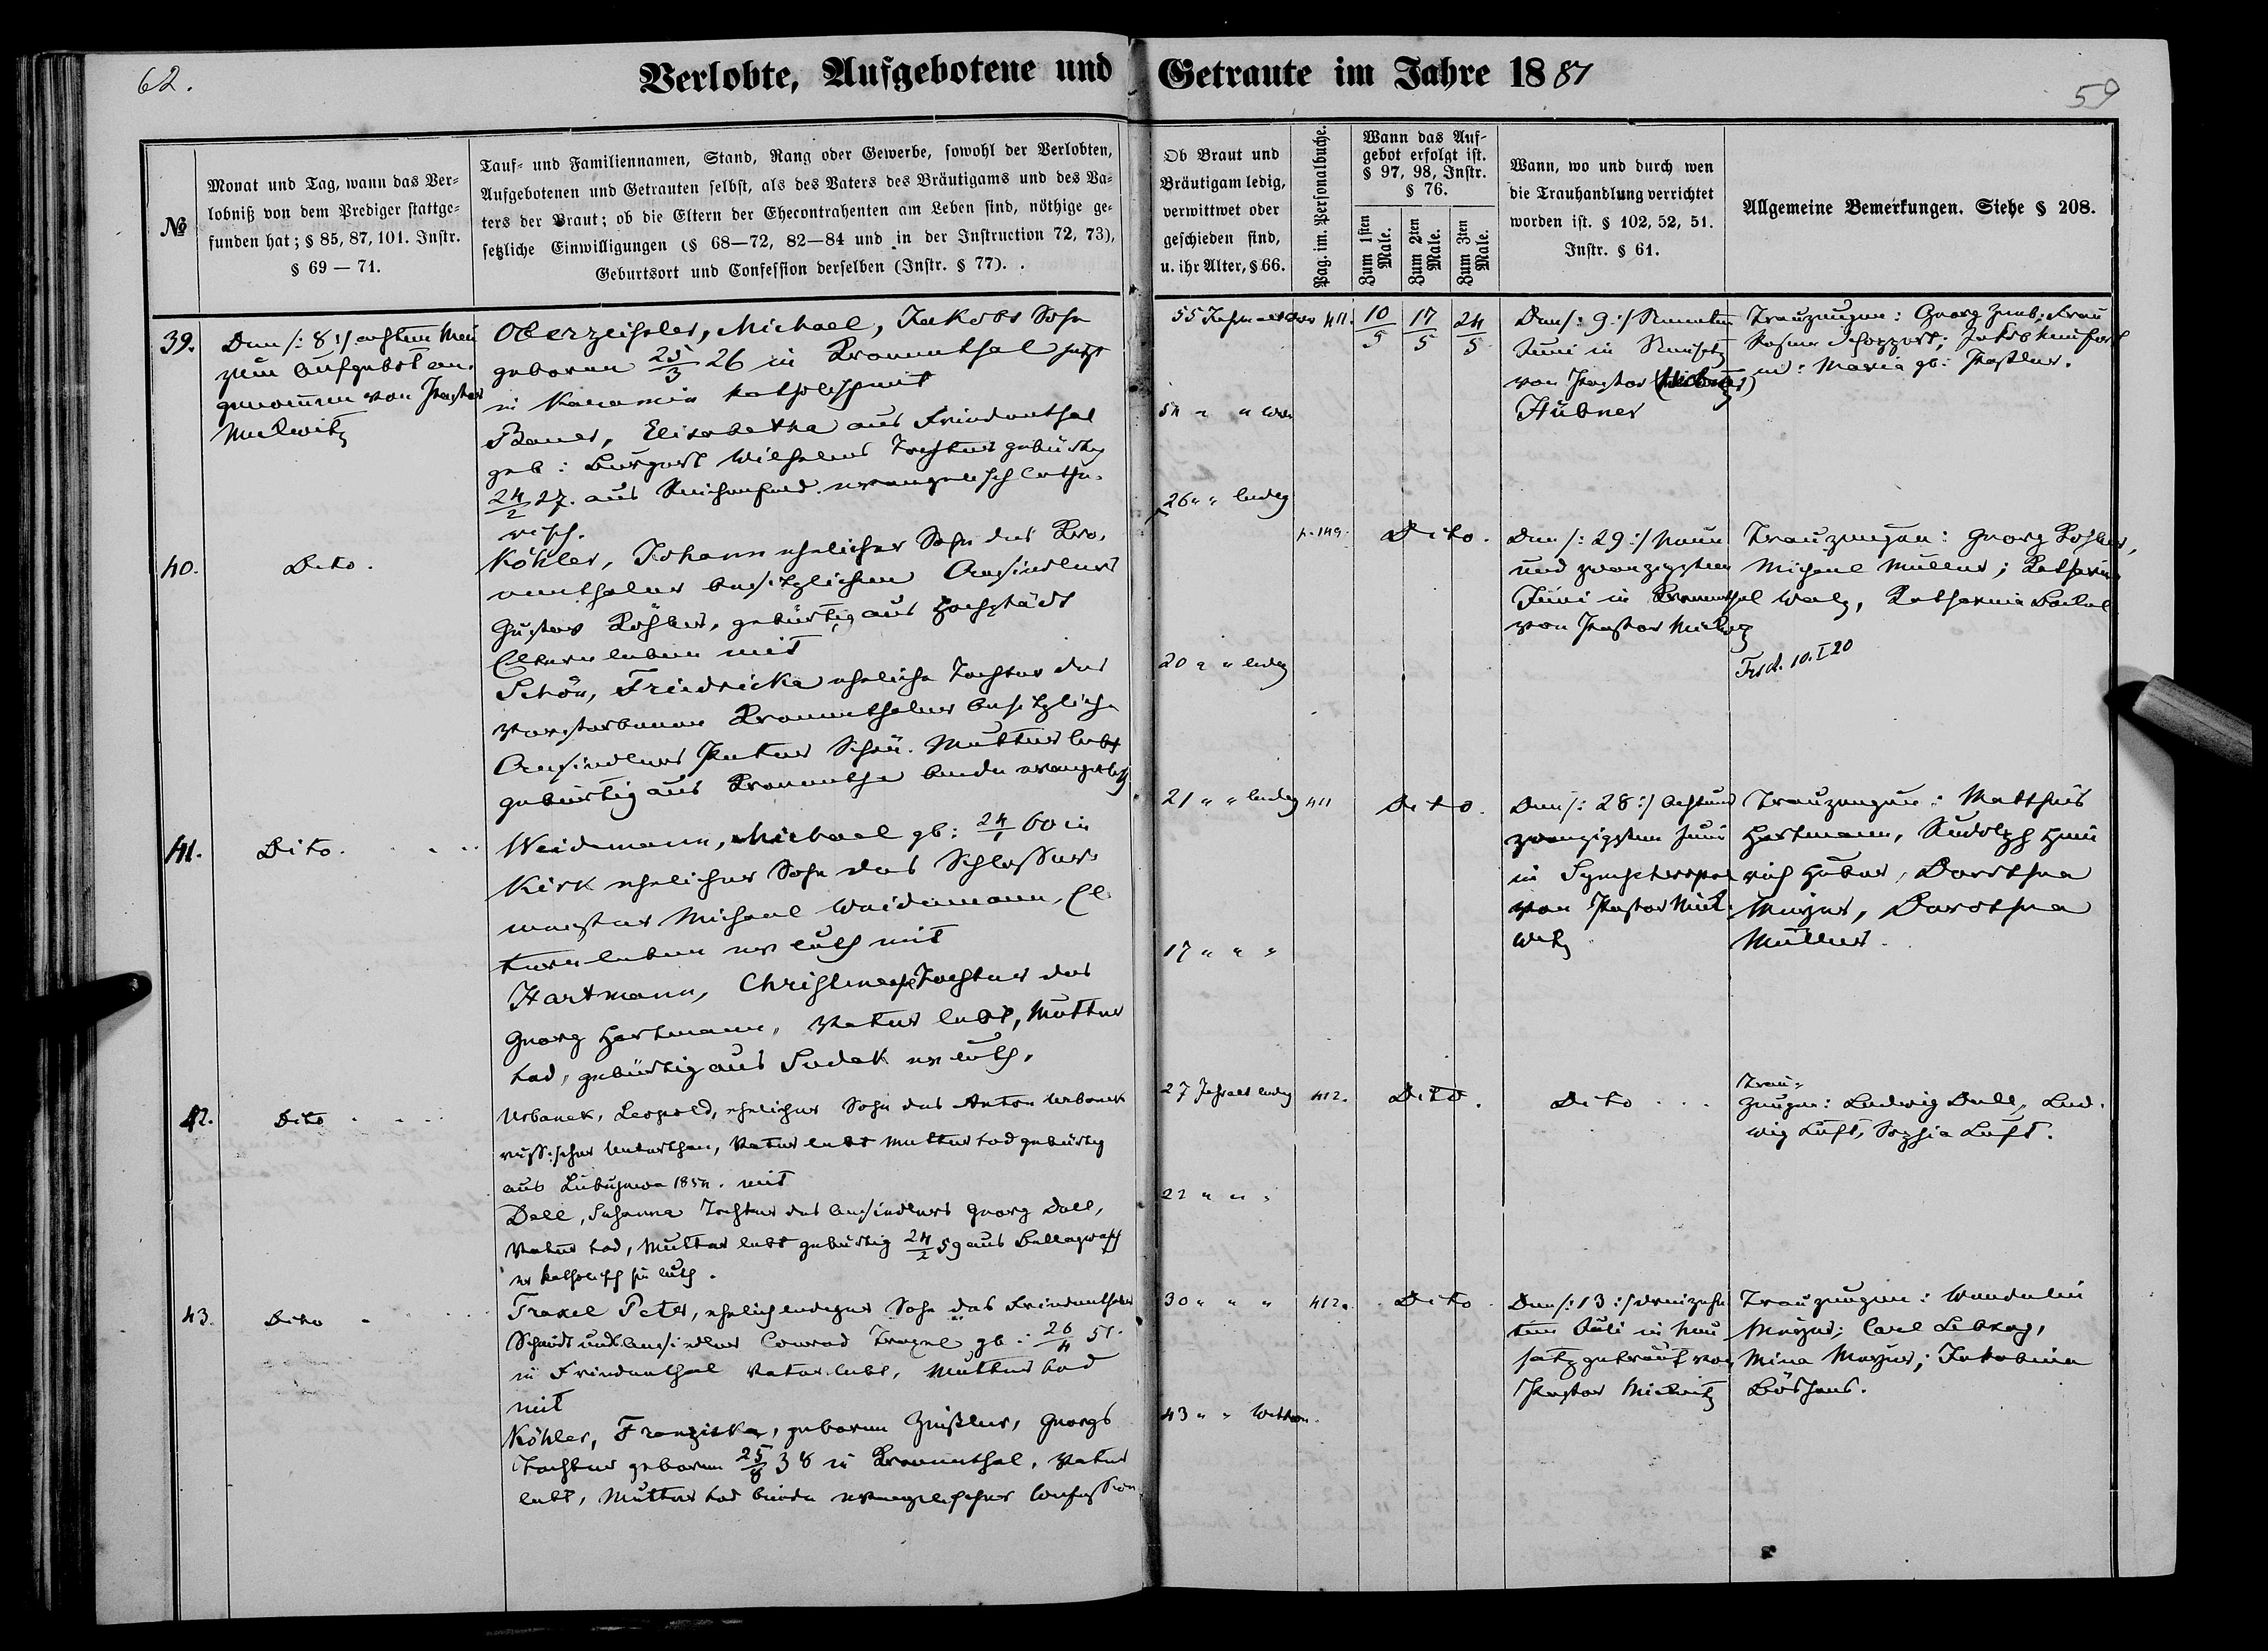 62.
Verlobte, Aufgebotene und Getraute im Jahre 1881
59
№
Monat und Tag, wann das Ver-
lobniß von dem Prediger stattge-
funden hat; § 85, 87, 101. Instr.
§ 69 — 71.
Tauf- und Familiennamen, Stand, Rang oder Gewerbe, sowohl der Verlobten,
Aufgebotenen und Getrauten selbst, als des Vaters des Bräutigams und des Va-
ters der Braut; ob die Eltern der Ehecontrahenten am Leben sind, nöthige ge-
setzliche Einwilligungen (§ 68—72, 82—84 und in der Instruction 72, 73),
Geburtsort und Confession derselben (Instr. § 77).
Ob Braut und
Bräutigam ledig,
verwittwet oder
geschieden sind,
u. ihr Alter, § 66.
Pag. im. Personalbuche.
Wann das Auf-
gebot erfolgt ist.
§ 97, 98, Instr.
§ 76.
Zum 1sten Male.
Zum 2ten Male.
Zum 3ten Male.
Wann, wo und durch wen
die Trauhandlung verrichtet
worden ist. § 102, 52, 51.
Instr. § 61.
Allgemeine Bemerkungen. Siehe § 208.
39.
Den /: 8 :/ achten Mai
zum Aufgebot an-
genommen von Pastor
Mickwitz
Oberzeihsler, Michael, Jakobs Sohn
geboren 25/3 26 in Kronenthal jetzt
in katholisch mit
Bauer, Elisabetha aus Friedenthal
geb: Burgart Wilhelms Tochter gebürtig
24/2 27. aus evangelisch luthe-
risch.
55 Jahr alt
54 " "
411.
10/5
17/5
24/5
Den /: 9 :/ Neunten
Juni in Neusatz
von Pastor
Hübner
Trauzeugen: Georg Frau
Jakob
Maria gb:
40.
Dito.
Köhler, Johann ehelicher Sohn des Kro-
nenthaler besitzlichen Ansiedlers
Gustav Köhler, gebürtig aus Hochstädt
Eltern leben mit
Schön, Friedricka eheliche Tochter des
verstorbenen Kronenthaler besitzlichen
Ansiedlers Peter Schön. Mutter lebt
gebürtig aus Kronenthal beide evangelisch
26 " " ledig
20 " " ledig
p. 149.
Dito.
Den /: 29 :/ neun
und zwanzigsten
Juni in Kronenthal
von Pastor Mickwitz
Trauzeugen: Georg Köhler,
Michael Müller; Katharina
Walz, Katharina
10. I 20
41.
Dito.
Weidemann, Michael gb: 24/1 60 in
Kirk ehelicher Sohn des Schlosser-
meister Michael Weidemann, El-
tern leben ev luth mit
Hartmann, Christine Tochter des
Georg Hartmann, Vater lebt, Mutter
tod, gebürtig aus Sudak ev luth.
21 " " ledig
17 " " "
411
Dito.
Den /: 28 :/ Achtund
zwanzigsten Juni
in Sympheropol
von Pastor Mick-
witz
Trauzeugen: Matthäus
Hartmann, Rudolph Hein-
rich Huber, Dorothea
Mayer, Dorothea
Müller.
42.
Dito
Urbanek, Leopold, ehelicher Sohn des Anton Urbanek
russischer Unterthan, Vater lebt Mutter tod gebürtig
aus 1854. mit
Doll, Susanna Tochter des Ansiedlers Georg Doll,
Vater tod, Mutter lebt gebürtig 24/2 59 aus
er katholisch sie luth.
27 Jahralt ledig
22 " " "
412.
Dito.
Dito ...
Trau-
zeugen: Ludwig Doll, Lud-
wig Luft, Sophia Luft.
43.
Dito
Traxel Peter, ehelich lediger Sohn des Friedenthaler
Schmidt und Ansiedler Conrad Traxel gb: 26/4 51.
in Friedenthal Vater lebt, Mutter tod
mit
Köhler, Franziska, geboren Zeißler, Georgs
Tochter geboren 25/8 38 in Kronenthal, Vater
lebt, Mutter tod beide evangelischer Confession
30 " " "
43 " " Wittwe.
412.
Dito
Den /: 13 :/ dreizehn-
ten Juli in Neu-
satz getraut von
Pastor Mickwitz
Trauzeugen: Wendelin
Mayer; Carl
Mina Mayer; Jakobina